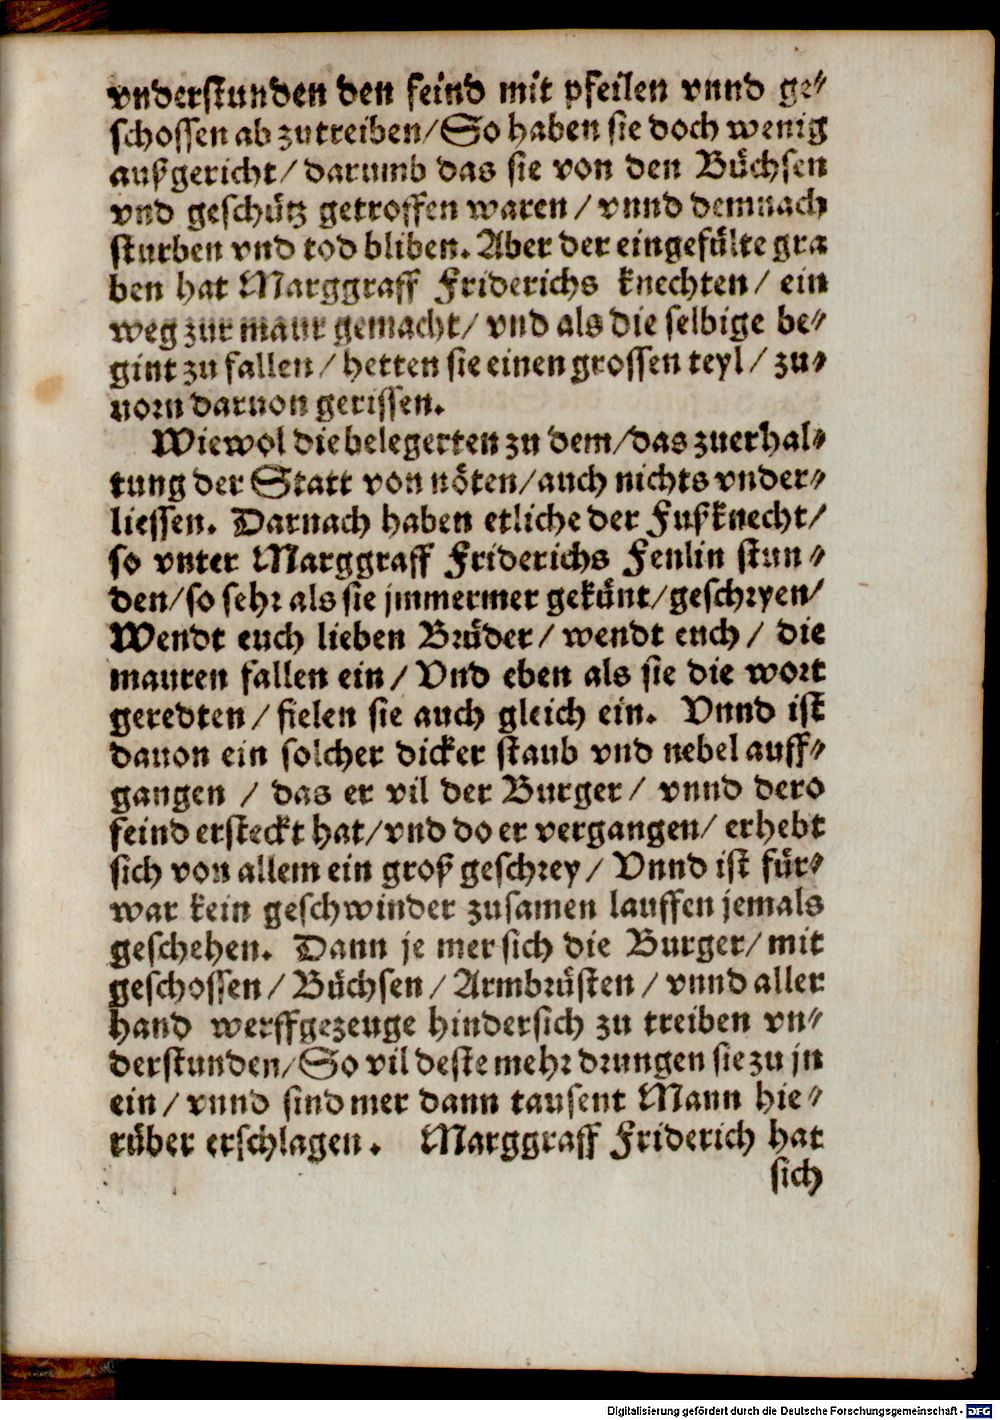 vnderstunden den feind mit pfeilen vnnd ge⸗
schossen ab zutreiben/ So haben sie doch wenig
außgericht/ darumb das sie von den Büchsen
vnd geschütz getroffen waren/ vnnd demnach
sturben vnd tod bliben. Aber der eingefülte gra
ben hat Marggraff Friderichs knechten/ ein
weg zur maur gemacht/ vnd als die selbige be⸗
gint zu fallen/ hetten sie einen grossen teyl/ zu⸗
uorn daruon gerissen.
Wiewol die belegerten zu dem/ das zuerhal⸗
tung der Statt von nöten/ auch nichts vnder⸗
liessen. Darnach haben etliche der Fußknecht/
so vnter Marggraff Friderichs Fenlin stun⸗
den/ so sehr als sie jmmermer gekünt/ geschryen/
Wendt euch lieben Brüder/ wendt euch/ die
mauren fallen ein/ Vnd eben als sie die wort
geredten/ fielen sie auch gleich ein. Vnnd ist
dauon ein solcher dicker staub vnd nebel auff⸗
gangen / das er vil der Burger/ vnnd dero
feind ersteckt hat/ vnd do er vergangen/ erhebt
sich von allem ein groß geschrey/ Vnnd ist für⸗
war kein geschwinder zusamen lauffen jemals
geschehen. Dann je mer sich die Burger/ mit
geschossen/ Büchsen/ Armbrüsten/ vnnd aller
hand werffgezeuge hindersich zu treiben vn⸗
derstunden/ So vil deste mehr drungen sie zu jn
ein/ vnnd sind mer dann tausent Mann hie⸗
rüber erschlagen. Marggraff Friderich hat
sich
Digitalisierung gefördert durch die Deutsche Forschungsgemeinschaft - DFG